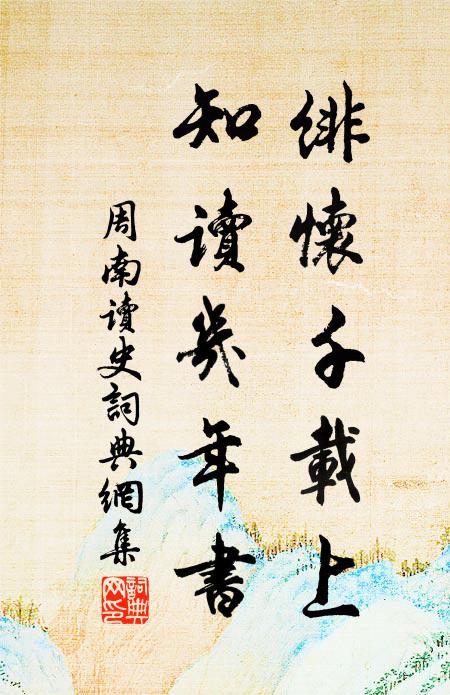 緋懷千載上
知讀幾年書
周南讀史詞典網集
詞典網印